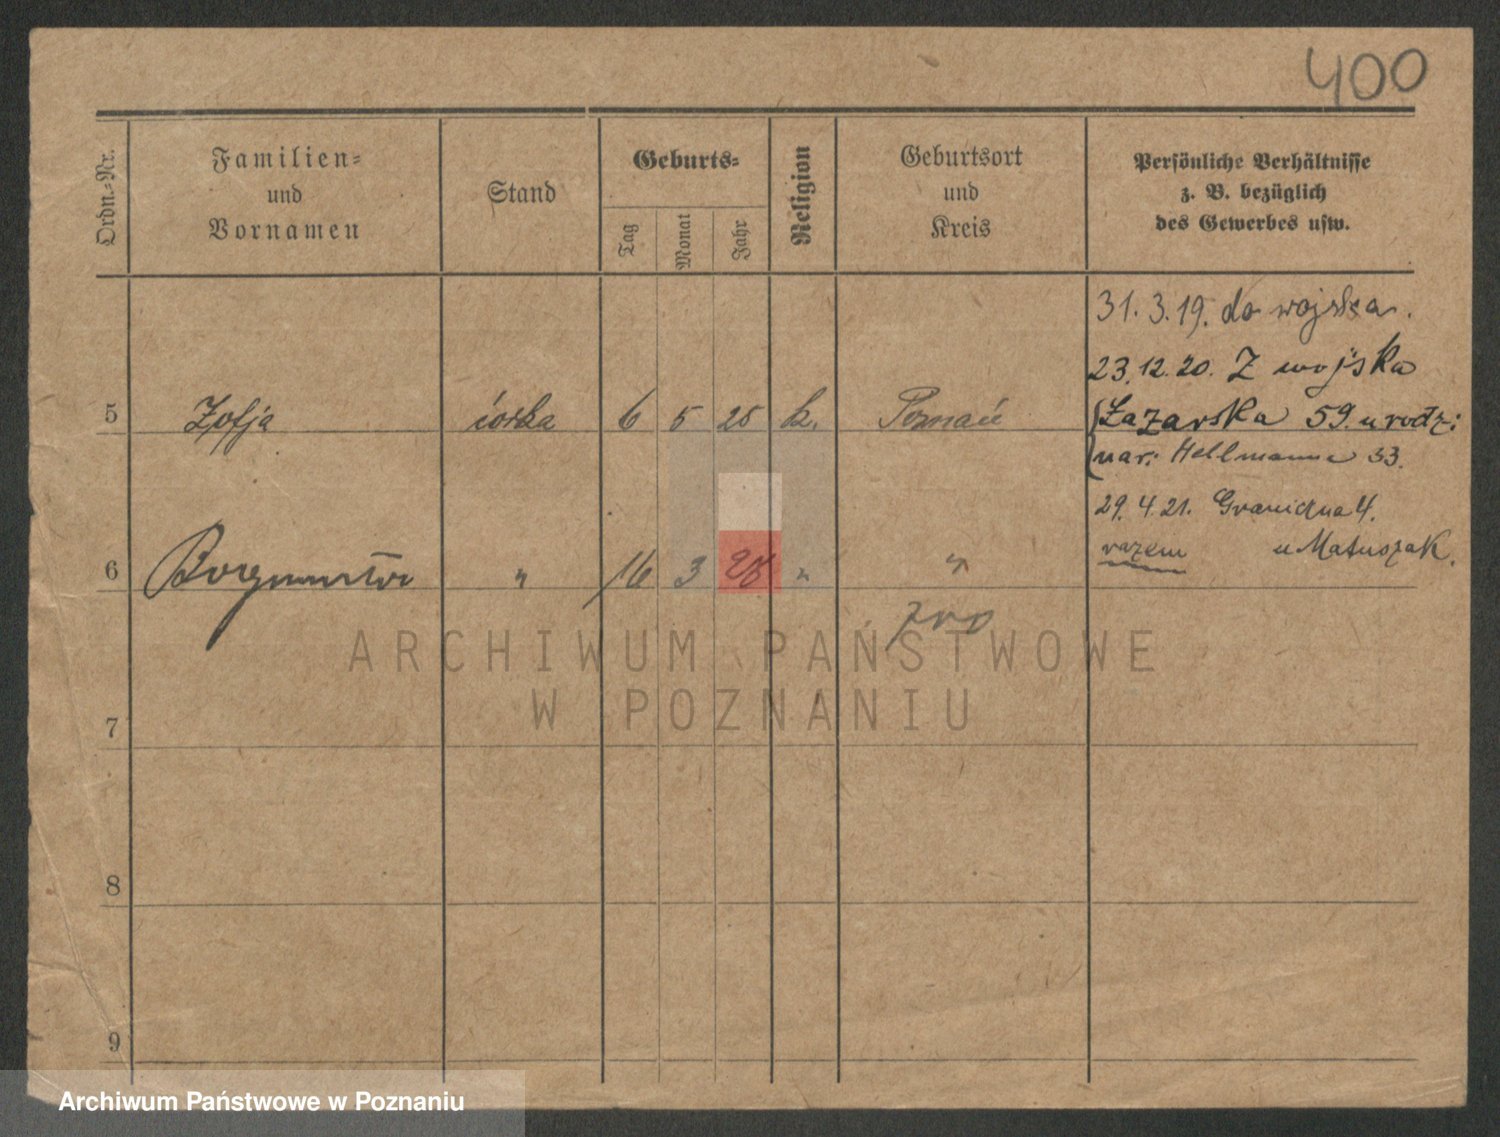 400
Ordn.-Nr.
Familien-
und
Vornamen
Stand
Geburts-
Tag
Monat
Jahr
Religion
Geburtsort
und
Kreis
Persönliche Verhältnisse
z. B. bezüglich
des Gewerbes usw.
31. 3. 19. do wojska.
23. 12. 20. Z wojska
5 Zofja córka 6 5 25 k. Poznań
Łazarska 59. u rodzi:
nar: Hellmanna 33.
29. 4. 21. Graniczna 4.
razem u Matuszak.
6 " 16 3 28 " "
7
8
9
ARCHIWUM PAŃSTWOWE
W POZNANIU
Archiwum Państwowe w Poznaniu